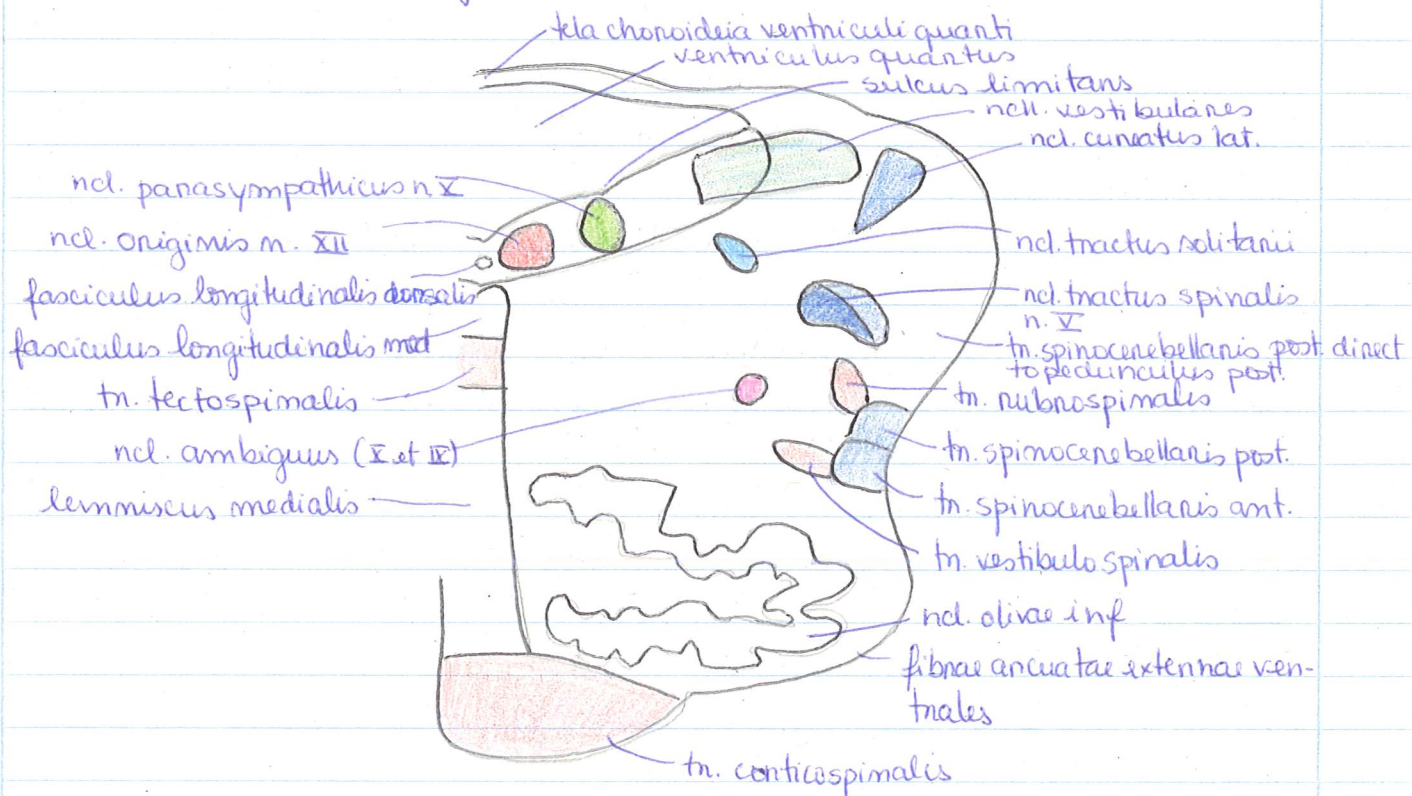 tela choroideia ventriculi quarti
ventriculus quartus
sulcus limitans
ncll. vestibulares
ncl. cuneatus lat.
ncl. parasympathicus n. X
ncl. originis n. XII
fasciculus longitudinalis dorsalis
fasciculus longitudinalis med
tr. tectospinalis
ncl. ambiguus (X et IX)
lemniscus medialis
ncl. tractus solitarii
ncl. tractus spinalis
n. V
tr. spinocerebellaris post. direct
to pedunculus post.
tr. rubrospinalis
tr. spinocerebellaris post.
tr. spinocerebellaris ant.
tr. vestibulospinalis
ncl. olivae inf
fibrae arcuatae externae ven-
trales
tr. corticospinalis